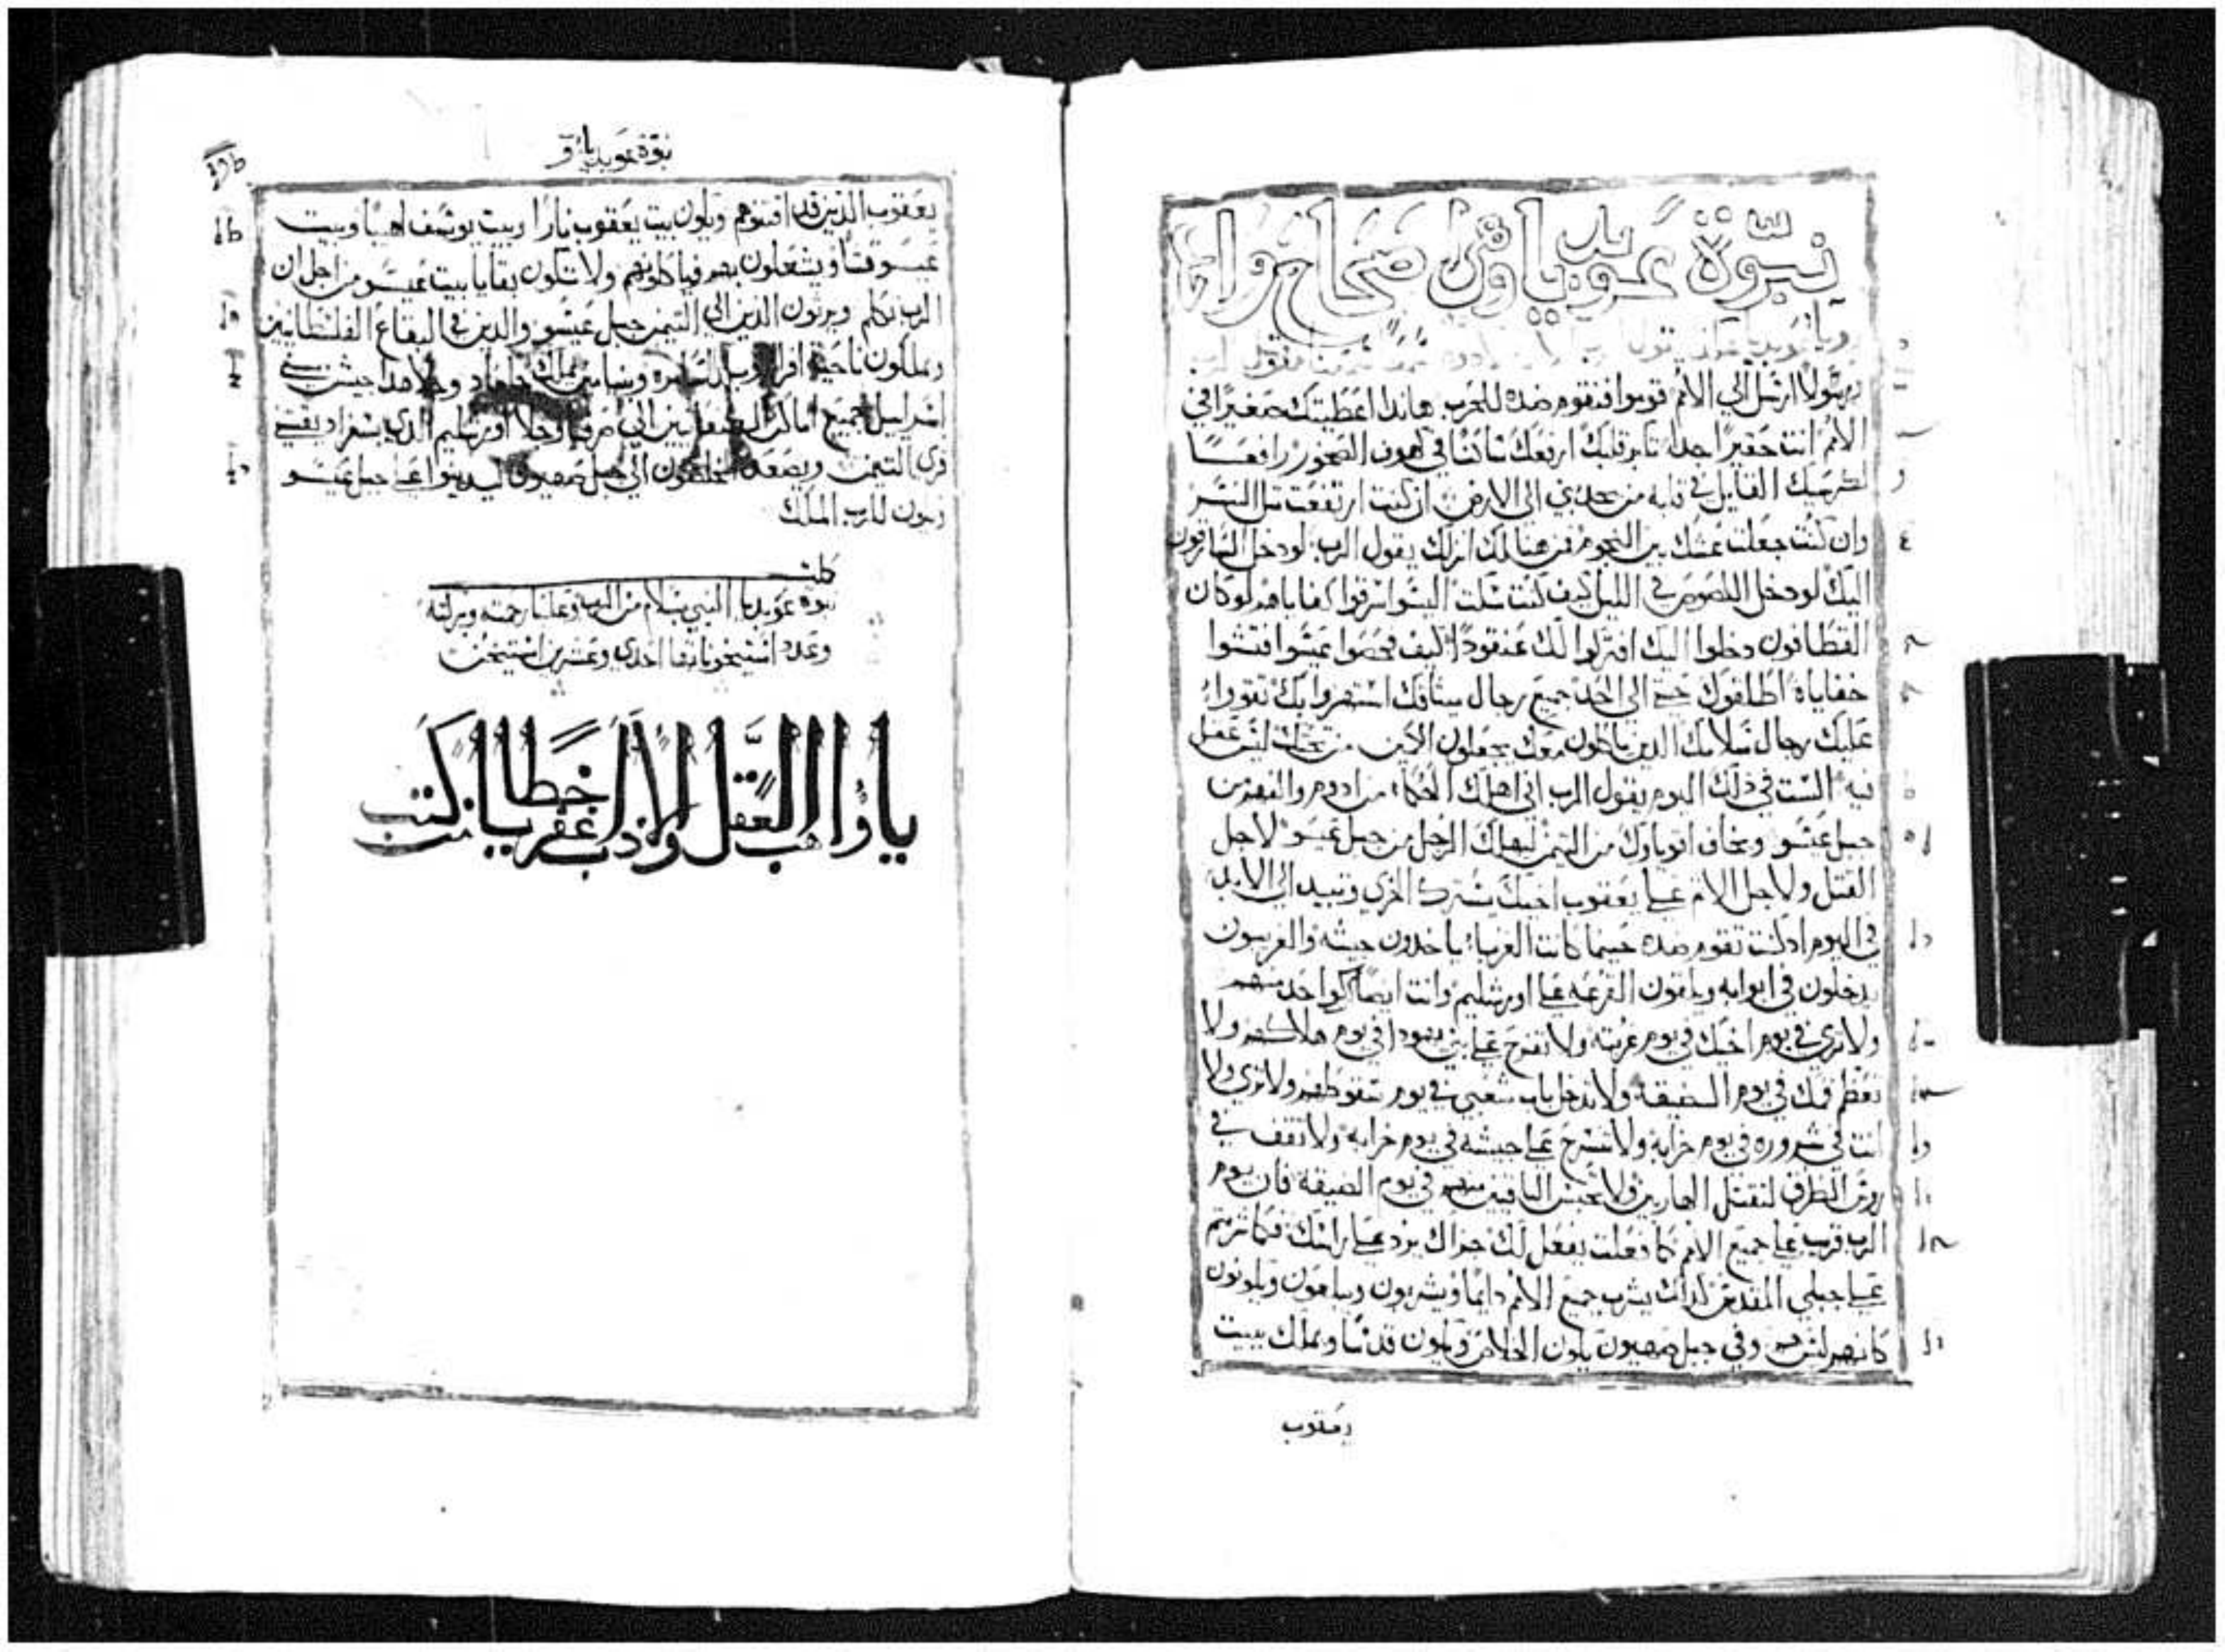 نبوة عوبديا وهى اصحاح واحد
رسولا ارسل الي الامم قوموا فنقوم ضده للحرب هاندا اعطيتك صغيرا في
الامم انت حقيرا جدا تكبر قلبك ارفعك ساكنا في كهوف الصخور رافعا
لكرسيك القايل في قلبه من يحدرني الى الارض ان كنت ارتفعت مثل النسر
وان كنت جعلت عشك بين النجوم فمن هنالك انزلك يقول الرب لو دخل السارقون
اليك لو دخل اللصوص في الليل كيف كنت سكت اليسوا سرقوا كفاياهم لو كان
القطافون دخلوا اليك افتركوا لك عنقودا كيف فحصوا عيسوا فتشوا
خفاياه اطلقوك حتي الى الحد جميع رجال ميثاقك استهزوا بك تقووا
عليك رجال سلامك الدين ياكلون معك يجعلون الكمين من تحتك ليس عقل
فيه الست في دلك اليوم يقول الرب اني اهلك الحكماء من ادوم والفهم من
جبل عيسو ويخاف اقوياوك من التيمن ليهلك الرجل من جبل عيسو لاجل
القتل ولاجل الاثم علي يعقوب اخيك يسترك الخزي وتبيد الي الابد
في اليوم اد كنت تقوم ضده حينما كانت الغرباء ياخدون جيشه والغريبون
يدخلون في ابوابه ويلقون القرعه على اورشليم وانت ايضا كواحد منهم
ولا تري في يوم اخيك في يوم غربته ولا تفرح على بني يهودا في يوم هلاكهم ولا
تعظم فمك في يوم الضيقة ولا تدخل باب شعبي في يوم سقوطهم ولا تري ولا
انت في شروره في يوم خرابه ولا تسرح على جيشه في يوم خرابه ولا تقف في
روس الطرق لتقتل الهاربين ولا تحبس الباقين منهم في يوم الضيقة فان يوم
الرب قريب على جميع الامم كما فعلت يفعل لك جزاك يرد على راسك فكما شربتم
على جبلي المقدس كداك يشرب جميع الامم دايما ويشربون ويبلعون ويكونون
كانهم ليس هم وفي جبل صهيون يكون الخلاص ويكون قدسا ويملك بيت
يعقوب
نبوة عوبديا
يعقوب الدين قد اقتنوهم ويكون بيت يعقوب نارا وبيت يوسف لهيبا وبيت
عيسو قشا ويشعلون بهم فياكلونهم ولا تكون بقايا بيت عيسو من اجل ان
الرب تكلم ويرثون الدين الي التيمن جبل عيسو والدين في البقاع الفلسطانيين
ويملكون ناحية افرام وبلد السامره وبنيامين يملك جلعاد وجلا هدا جيش بني
اسراييل جميع اماكن الكنعانيين الى صرفيا وجلا اورشليم الدي بسفراد يقتني
قري التيمن ويصعد المخلصون الي جبل صهيون ليدينوا على جبل عيسو
ويكون للرب الملك
كملت
نبوة عوبديا النبي بسلام من الرب وعلينا رحمته وبركته
وعدد استيخوناتها احدي وعشرين استيخن
يا واهب العقل والادب اغفر يا رب خطا من كتب